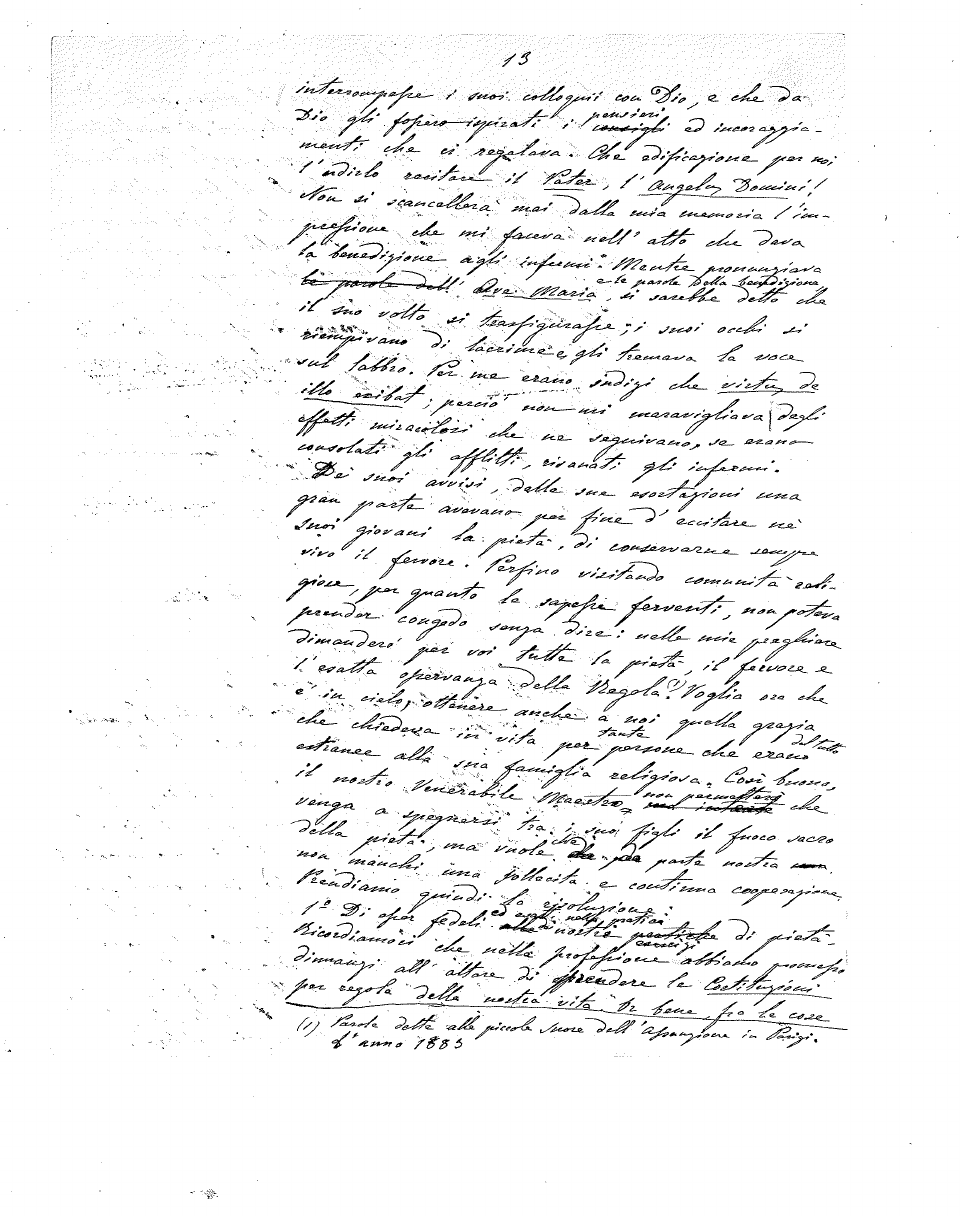 13
interrompesse i suoi colloquii con Dio, e che da
Dio gli fossero ispirati i consigli pensieri ed incoraggia-
menti che ci regalava. Che edificazione per noi
l'udirlo recitare il Pater, l'Angelus Domini!
Non si scancellerà mai dalla mia memoria l'im-
pressione che mi faceva nell'atto che dava
la benedizione agli infermi. Mentre pronunziava
le parole dell'Ave Maria, e le parole della benedizione si sarebbe detto che
il suo volto si trasfigurasse; i suoi occhi si
riempivano di lacrime e gli tremava la voce
sul labbro. Per me erano indizi che virtus de
illo exibat; perciò non mi maravigliava degli
effetti miracolosi che ne seguivano, se erano
consolati gli afflitti, risanati gli infermi.
De' suoi avvisi, delle sue esortazioni una
gran parte avevano per fine d'eccitare ne'
suoi giovani la pietà, di conservarne sempre
vivo il fervore. Perfino visitando comunità reli-
giose, per quanto le sapesse ferventi, non poteva
prender congedo senza dire: nelle mie preghiere
dimanderò per voi tutte la pietà, il fervore e
l'esatta osservanza della Regola. (1) Voglia ora che
è in cielo, ottenere anche a noi quella grazia
che chiedeva in vita per tante persone che erano del tutto
estranee alla sua famiglia religiosa. Così buono,
il nostro Venerabile Maestro, non permetterà che
venga a spegnersi tra i suoi figli il fuoco sacro
della pietà, ma vuole che da parte nostra
non manchi una sollecita e continua cooperazione.
Prendiamo quindi la risoluzione:
1º Di esser fedeli ed esatti nelle nostre pratiche di pietà.
Ricordiamoci che nella professione abbiamo promesso
dinnanzi all'altare di prendere le Costituzioni
per regola della nostra vita. Or bene, fra le cose
(1) Parole dette alle piccole Suore dell'Assunzione in Parigi.
l'anno 1883